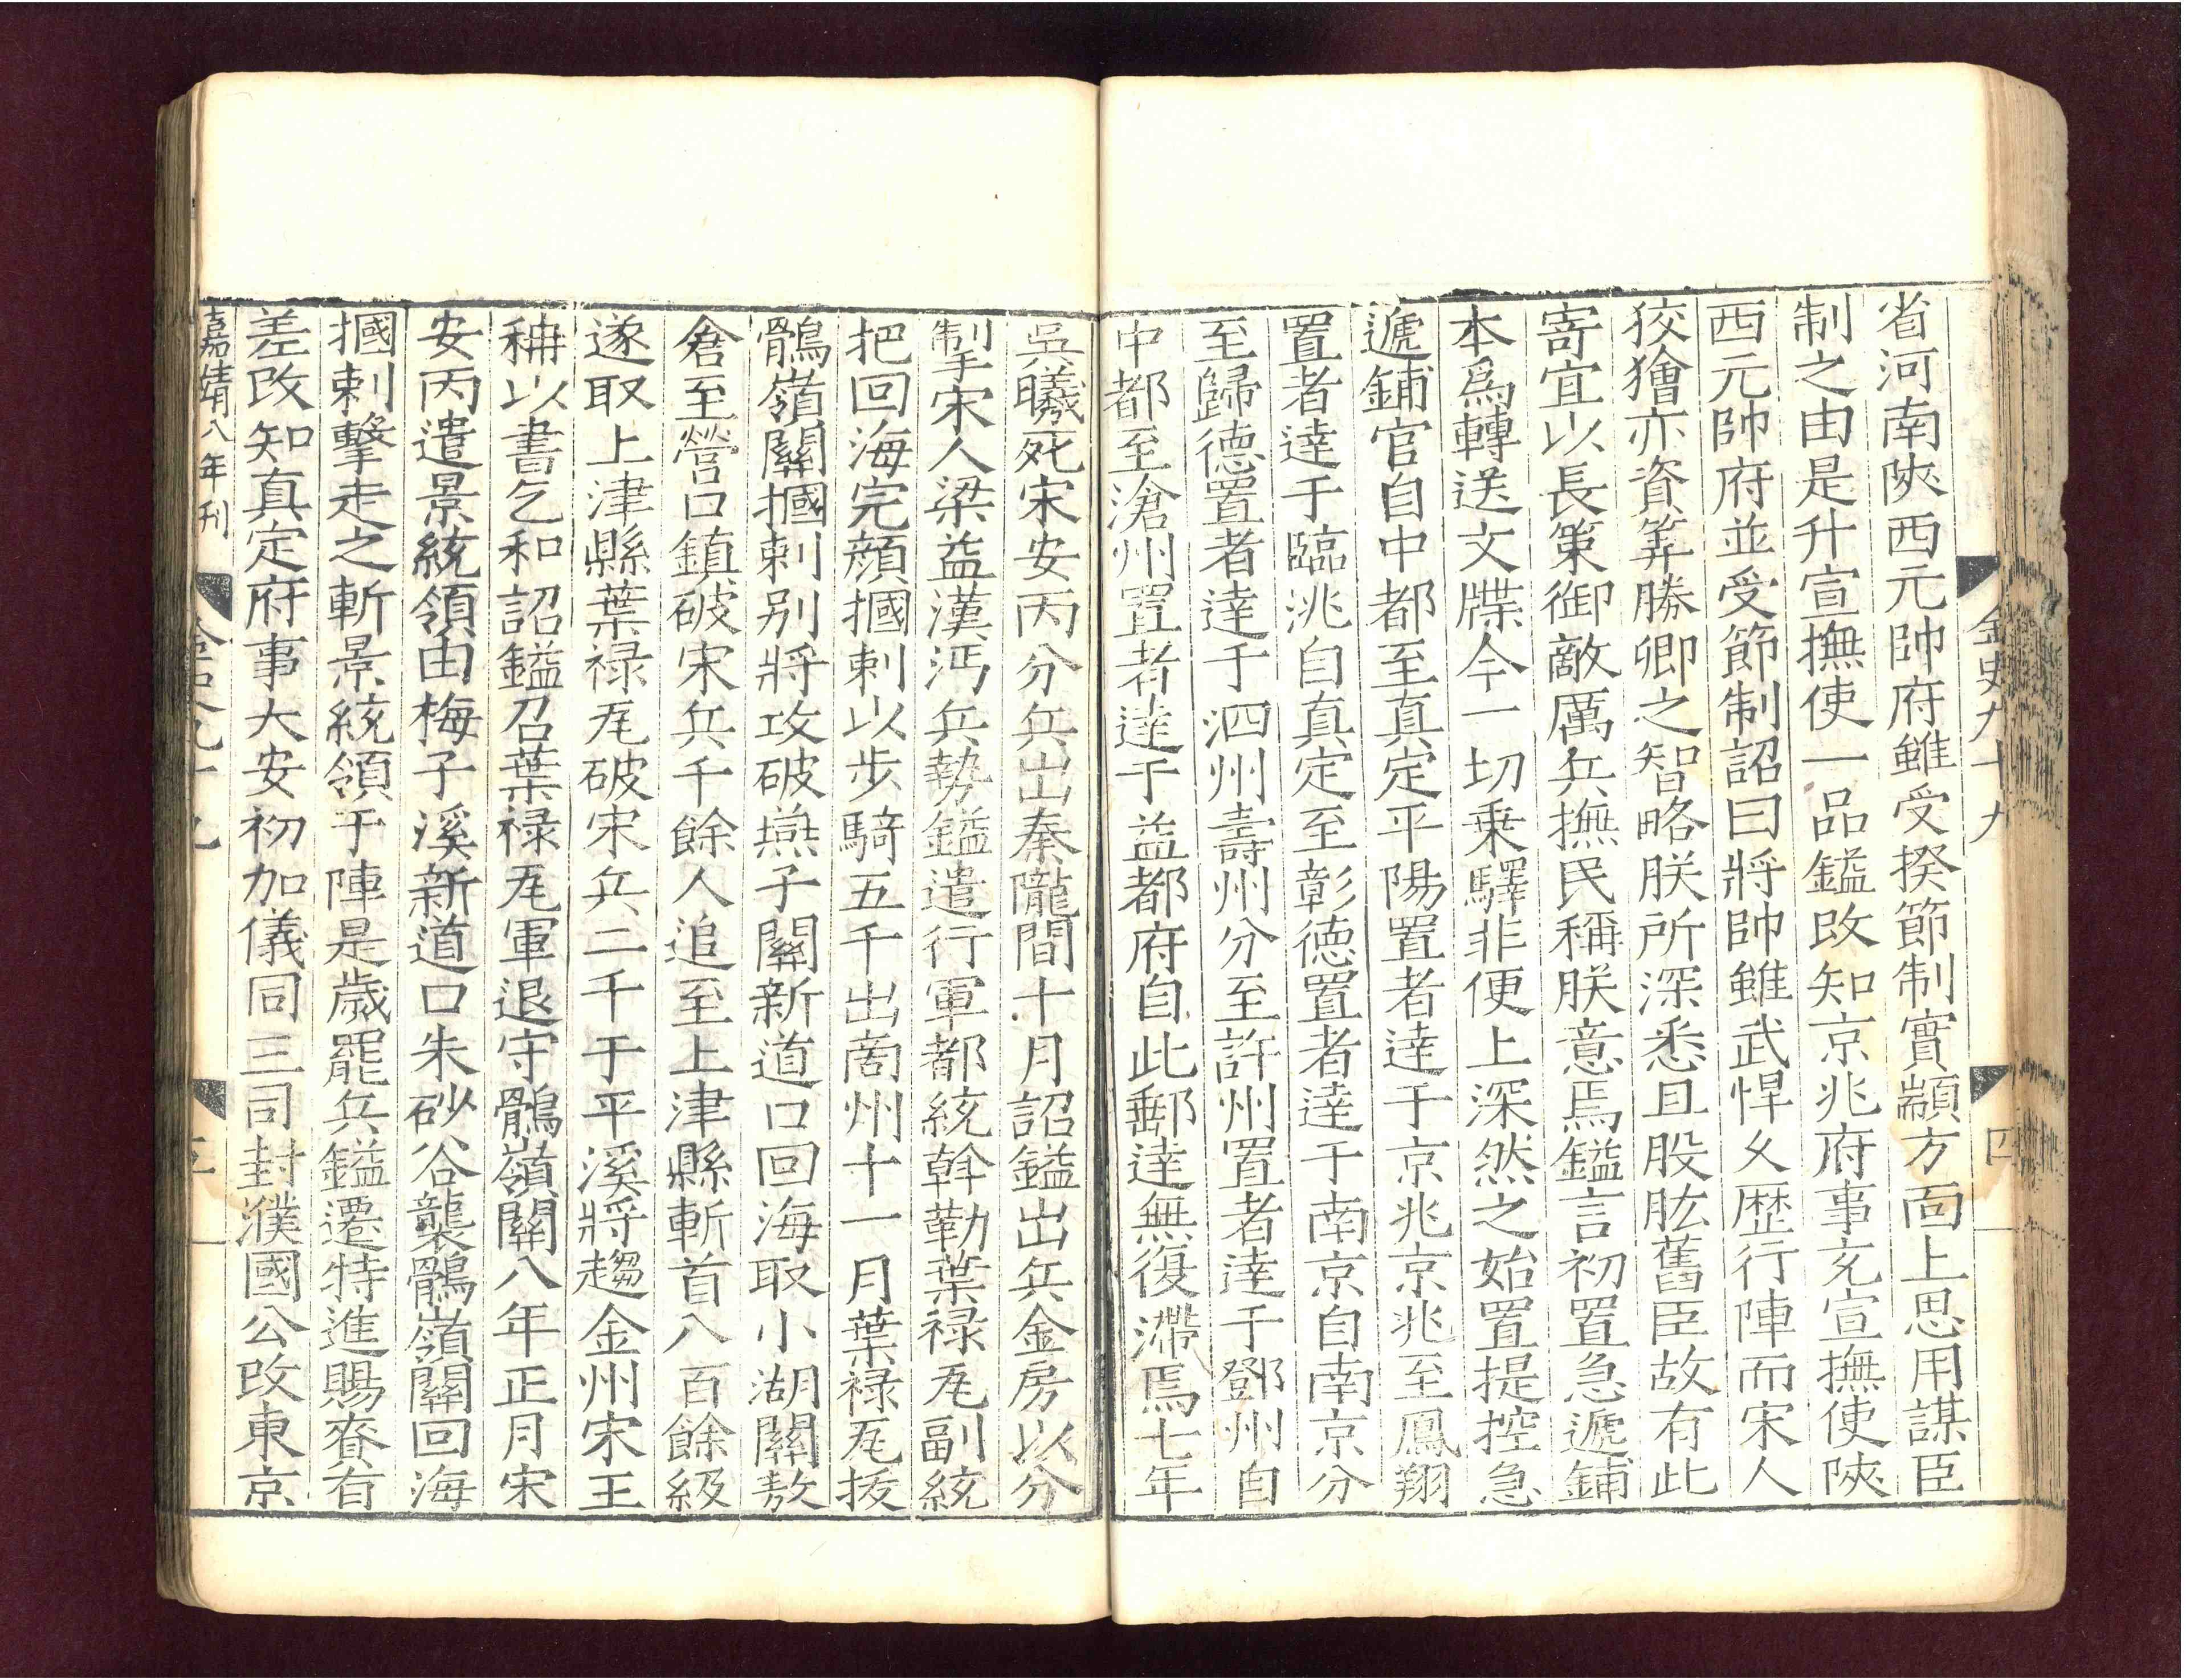 金史九十九
四
省河南陝西元帥府雖受揆節制實顓方面上思用謀臣
制之由是升宣撫使一品鎰改知京兆府事充宣撫使陝
西元帥府並受節制詔曰將帥雖武悍久歷行陣而宋人
狡獪亦資筭勝卿之智略朕所深悉且股肱舊臣故有此
寄宜以長策御敵厲兵撫民稱朕意焉鎰言初置急遞鋪
本爲轉送文牒今一切乗驛非便上深然之始置提控急
遞鋪官自中都至真定平陽置者達于京兆京兆至鳳翔
置者達于臨洮自真定至彰德置者達于南京自南京分
至歸德置者達于泗州壽州分至許州置者達于鄧州自
中都至滄州置者達于益都府自此郵達無復滯焉七年
吳曦死宋安丙分兵出秦隴間十月詔鎰出兵金房以分
掣宋人梁益漢沔兵勢鎰遣行軍都統斡勒葉禄瓦副統
把回海完顏摑剌以步騎五千出商州十一月葉禄瓦拔
鶻嶺關摑剌别將攻破燕子關新道口回海取小湖關敖
倉至營口鎮破宋兵千餘人追至上津縣斬首八百餘級
遂取上津縣葉禄瓦破宋兵二千于平溪將趨金州宋王
柟以書乞和詔鎰召葉禄瓦軍退守鶻嶺關八年正月宋
安丙遣景統領由梅子溪新道口朱砂谷襲鶻嶺關回海
摑剌擊走之斬景統領于陣是歲罷兵鎰遷特進賜賚有
差改知真定府事大安初加儀同三司封濮國公改東京
嘉靖八年刊